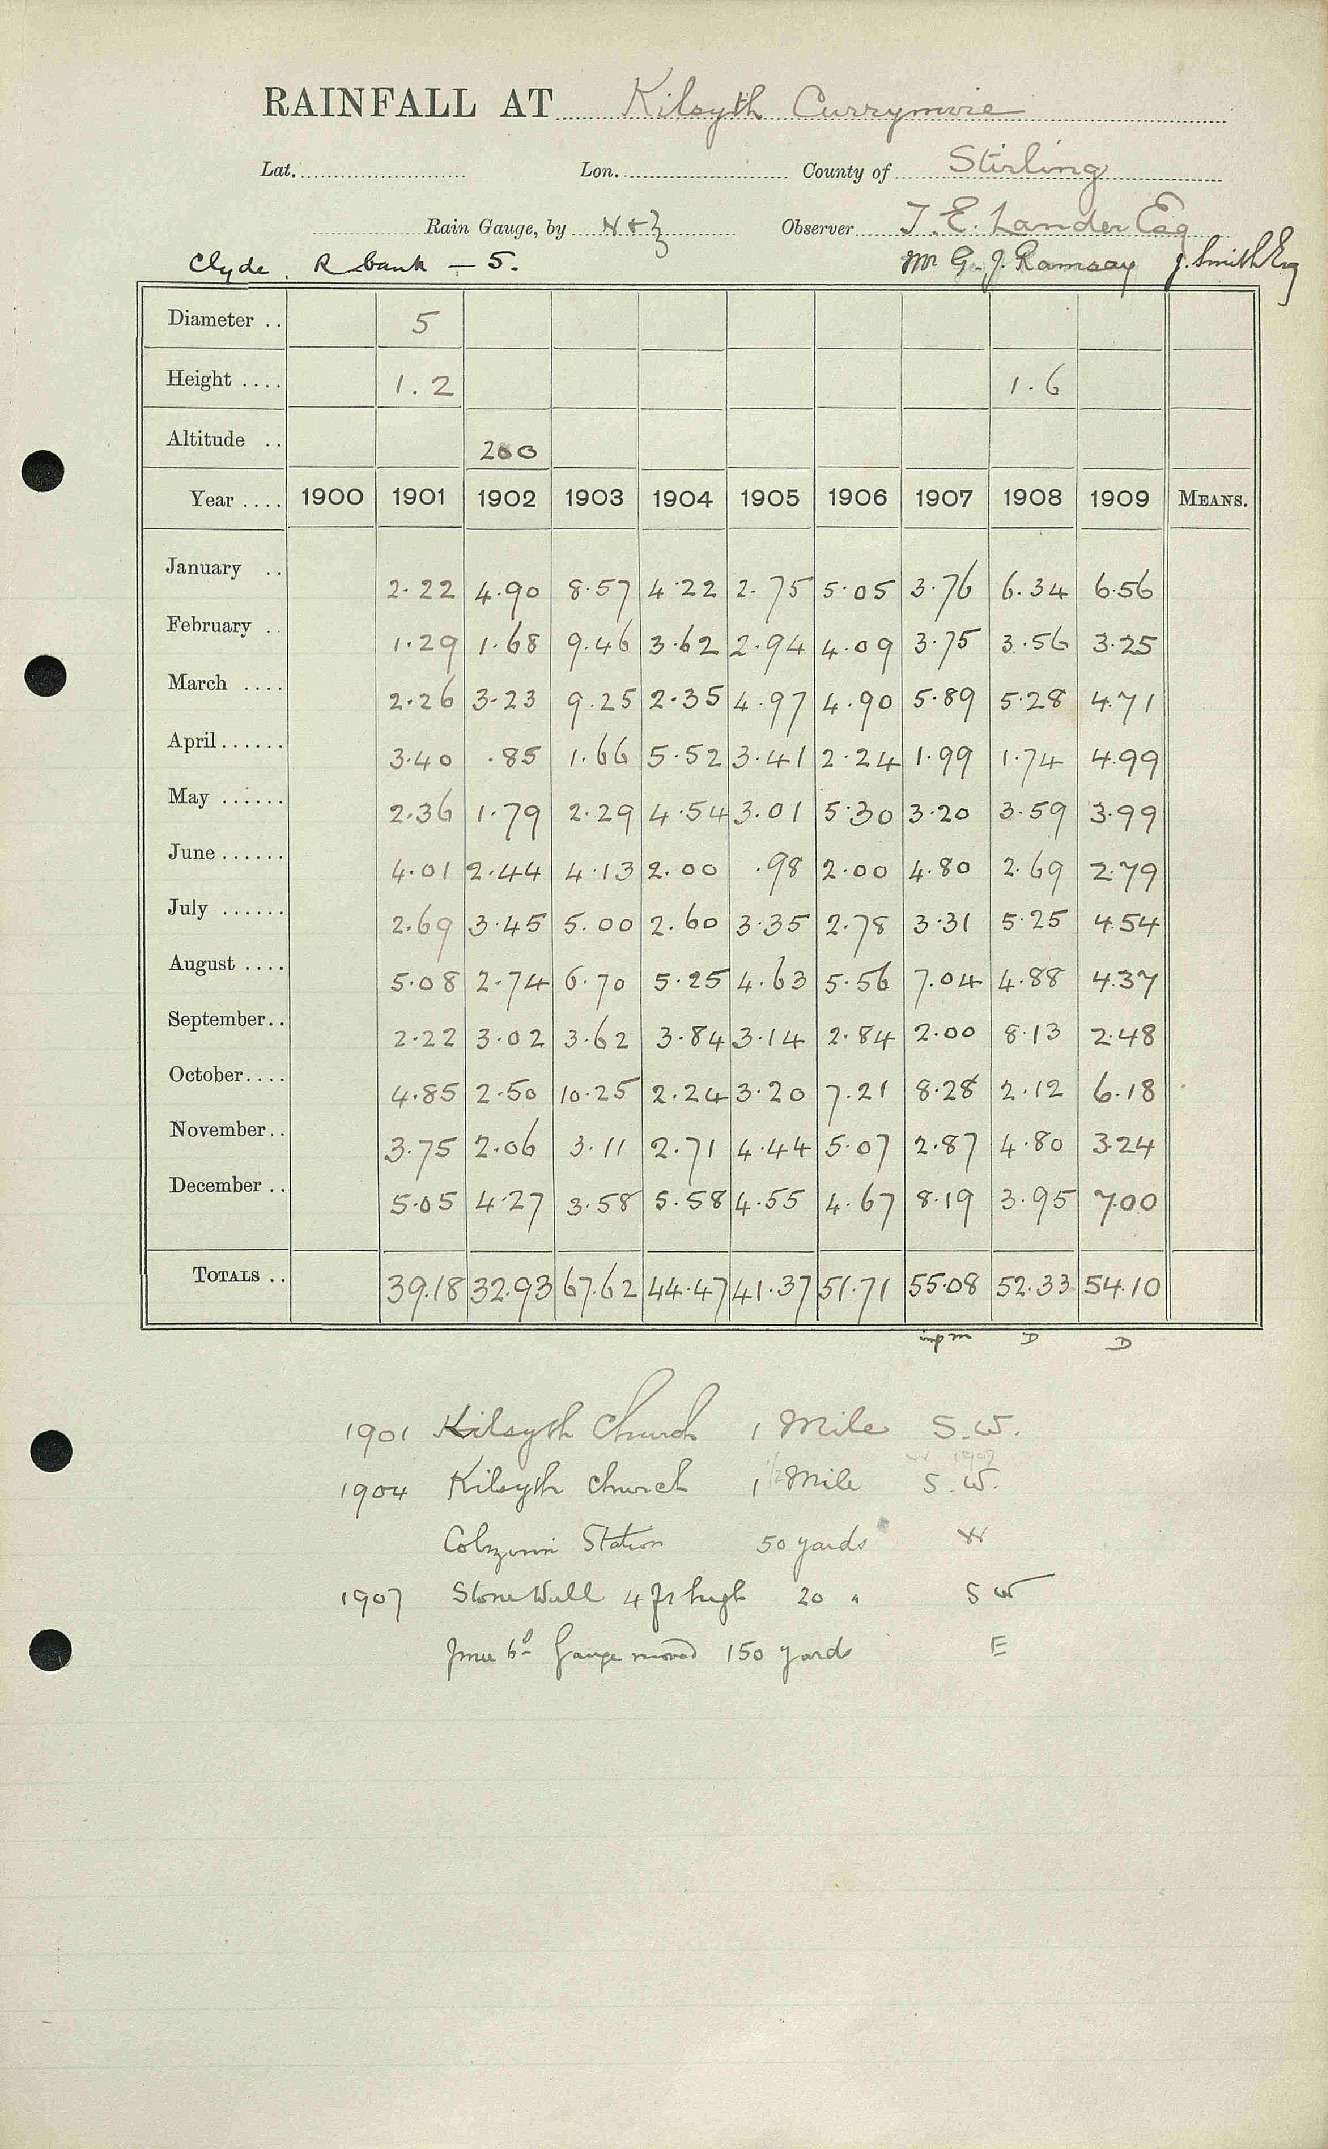 RAINFALL AT Kilsyth Currymire
Lat. Lon. County of Stirling
Rain Gauge, by N & Z Observer T. E. Lander Esq
Clyde. R bank - 5. Mr G. J. Ramsay J. Smith Esq
Diameter .. 5
Height .... 1.2 1.6
Altitude .. 200
Year .... 1900 1901 1902 1903 1904 1905 1906 1907 1908 1909 MEANS.
January .. 2.22 4.90 8.57 4.22 2.75 5.05 3.76 6.34 6.56
February .. 1.29 1.68 9.46 3.62 2.94 4.09 3.75 3.56 3.25
March .... 2.26 3.23 9.25 2.35 4.97 4.90 5.89 5.28 4.71
April...... 3.40 .85 1.66 5.52 3.41 2.24 1.99 1.74 4.99
May ...... 2.36 1.79 2.29 4.54 3.01 5.30 3.20 3.59 3.99
June...... 4.01 2.44 4.13 2.00 .98 2.00 4.80 2.69 2.79
July ...... 2.69 3.45 5.00 2.60 3.35 2.78 3.31 5.25 4.54
August .... 5.08 2.74 6.70 5.25 4.63 5.56 7.04 4.88 4.37
September.. 2.22 3.02 3.62 3.84 3.14 2.84 2.00 8.13 2.48
October.... 4.85 2.50 10.25 2.24 3.20 7.21 8.28 2.12 6.18
November.. 3.75 2.06 3.11 2.71 4.44 5.07 2.87 4.80 3.24
December .. 5.05 4.27 3.58 5.58 4.55 4.67 8.19 3.95 7.00
TOTALS .. 39.18 32.93 67.62 44.47 41.37 51.71 55.08 52.33 54.10
D D
1901 Kilsyth Church 1 Mile S.W.
W 1907
1904 Kilsyth Church 1 Mile S.W.
Station 50 yards W
1907 Stone Wall 4 ft high 20 " S W
June 6th Gauge moved 150 yards E